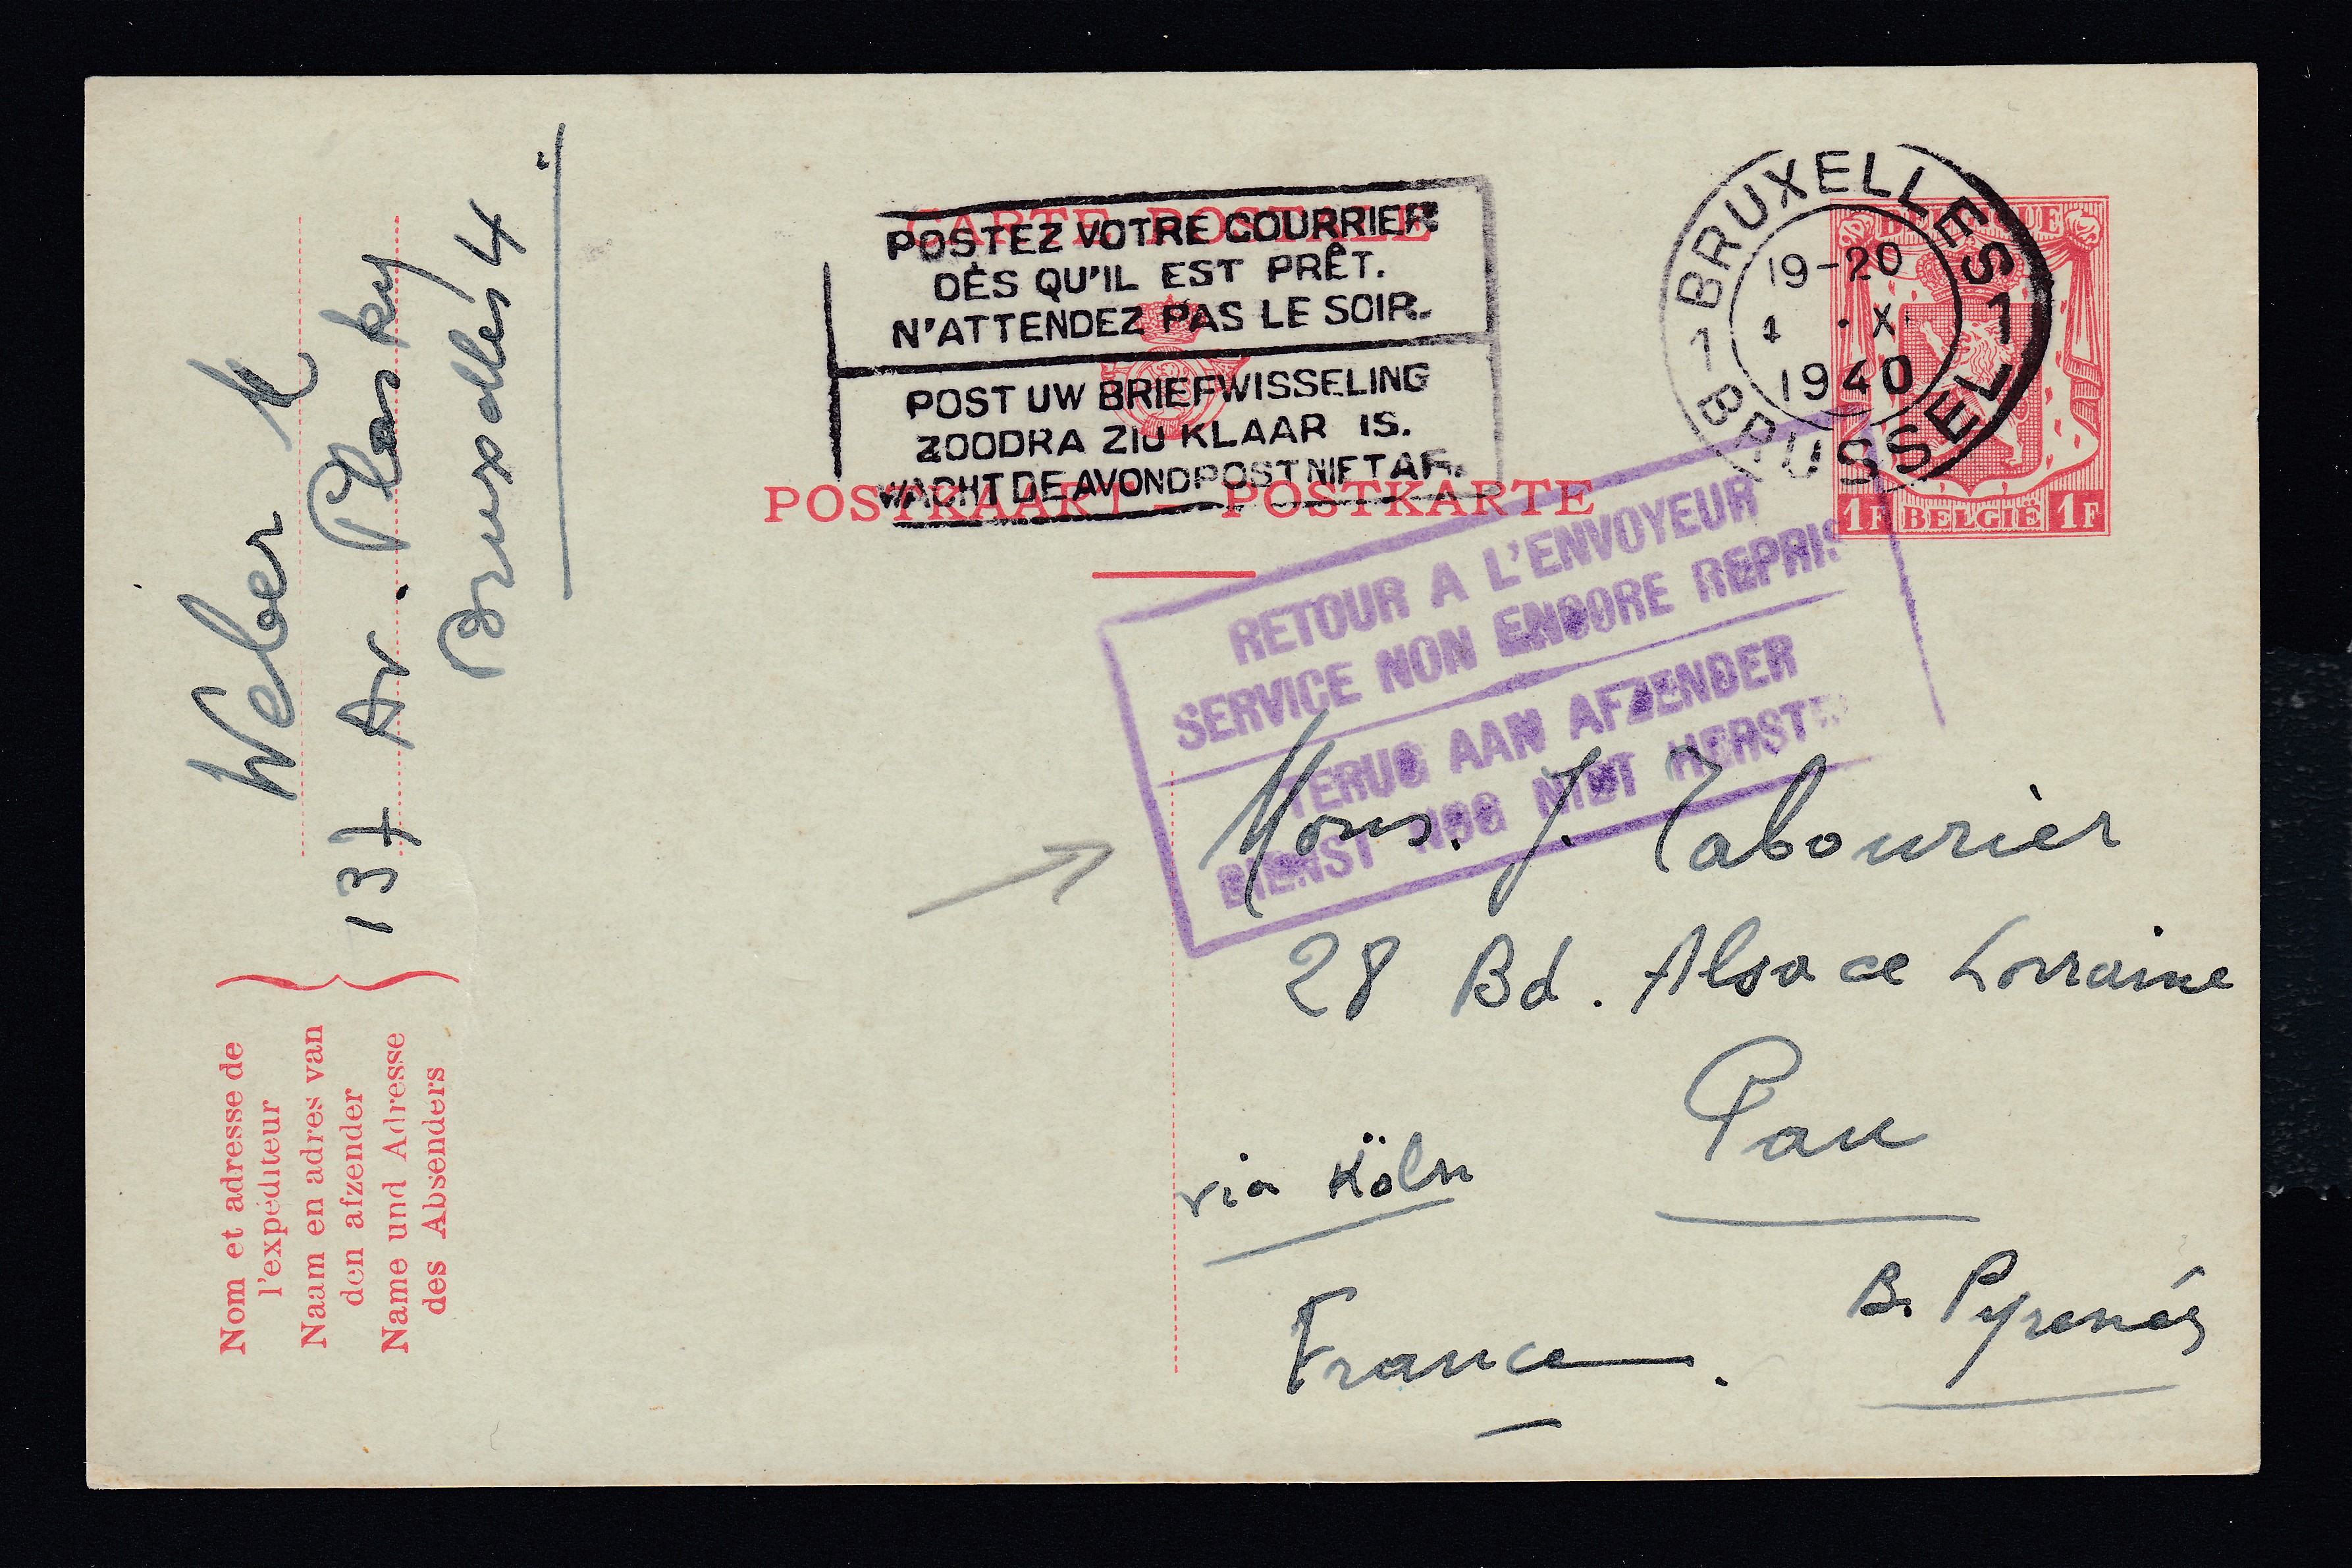 CARTE POSTALE
POSTEZ VOTRE COURRIER
DÈS QU'IL EST PRÊT.
N'ATTENDEZ PAS LE SOIR.
POST UW BRIEFWISSELING
ZOODRA ZIJ KLAAR IS.
WACHT DE AVONDPOST NIET AF.
POSTKAART — POSTKARTE
BRUXELLES 1
19-20
1940
1 BRUSSEL
BELGIQUE
1F BELGIË 1F
RETOUR A L'ENVOYEUR
SERVICE NON ENCORE REPRIS
TERUG AAN AFZENDER
DIENST NOG NIET
Mons. J. Tabourier
28 Bd. Alsace Lorraine
Pau
via Köln
B. Pyrenées
France.
Weber
137 Av. Plasky
Bruxelles 4
Nom et adresse de
l'expéditeur
Naam en adres van
den afzender
Name und Adresse
des Absenders